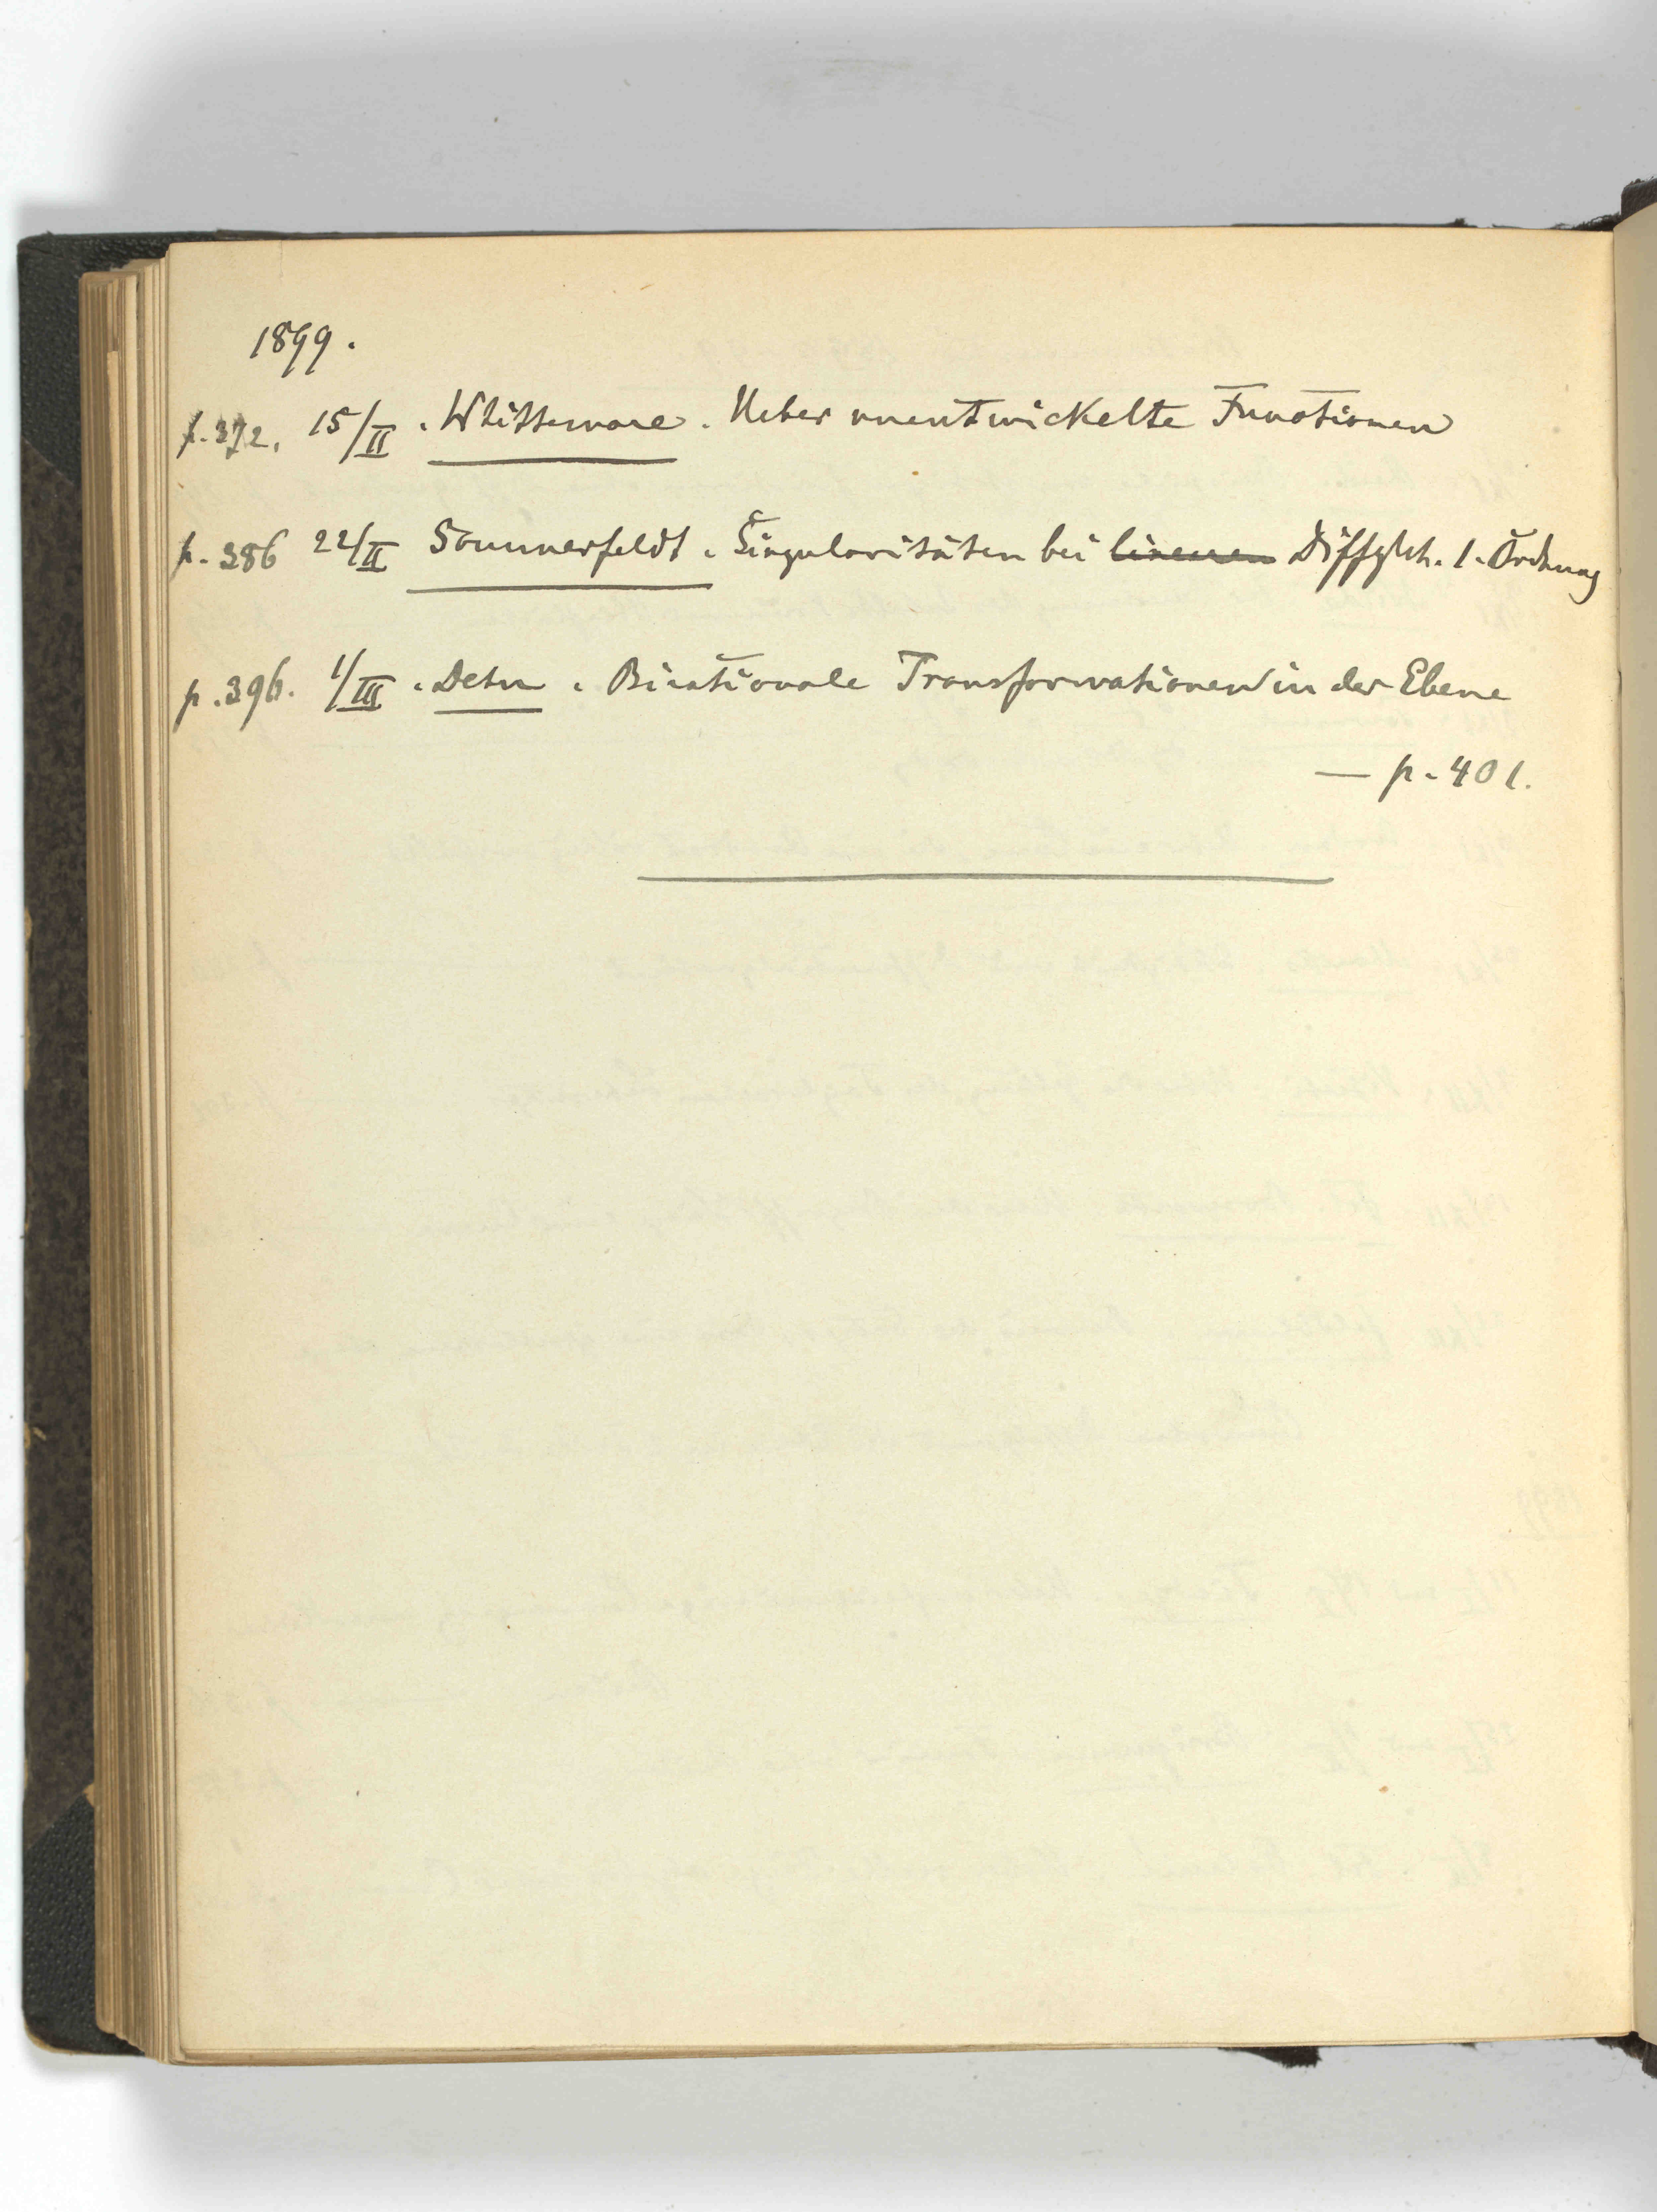 1899.
p. 372. 15/II. Whittemore. Ueber unentwickelte Functionen
p. 386 22/II Sommerfeldt. Singularitäten bei linearen Diffglch. 1. Ordnung
p. 396. 1/III. Dehn. Birationale Transformationen in der Ebene
— p. 401.